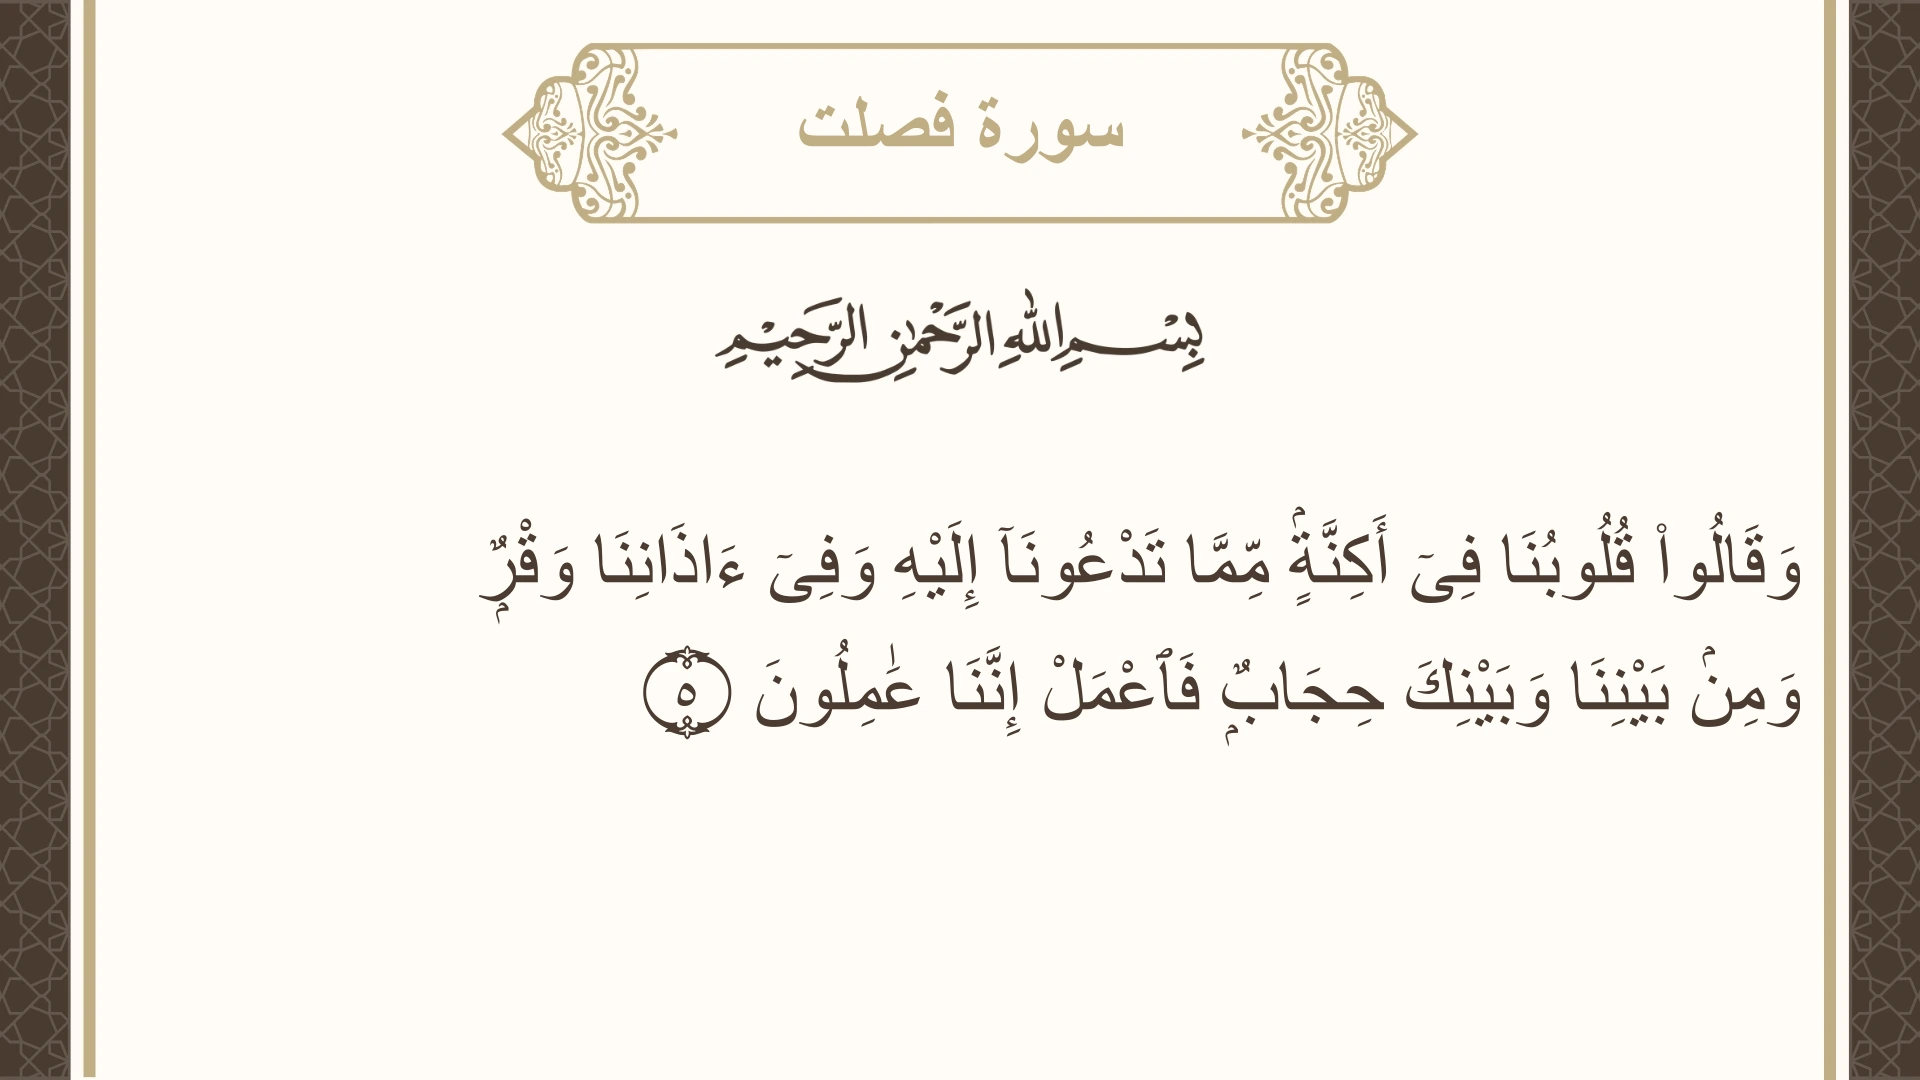 سورة فصلت
بِسْمِ اللهِ الرَّحْمٰنِ الرَّحِيْمِ
وَقَالُوا۟ قُلُوبُنَا فِىٓ أَكِنَّةٍۢ مِّمَّا تَدْعُونَآ إِلَيْهِ وَفِىٓ ءَاذَانِنَا وَقْرٌۭ
وَمِنۢ بَيْنِنَا وَبَيْنِكَ حِجَابٌۭ فَٱعْمَلْ إِنَّنَا عَٰمِلُونَ ۝٥